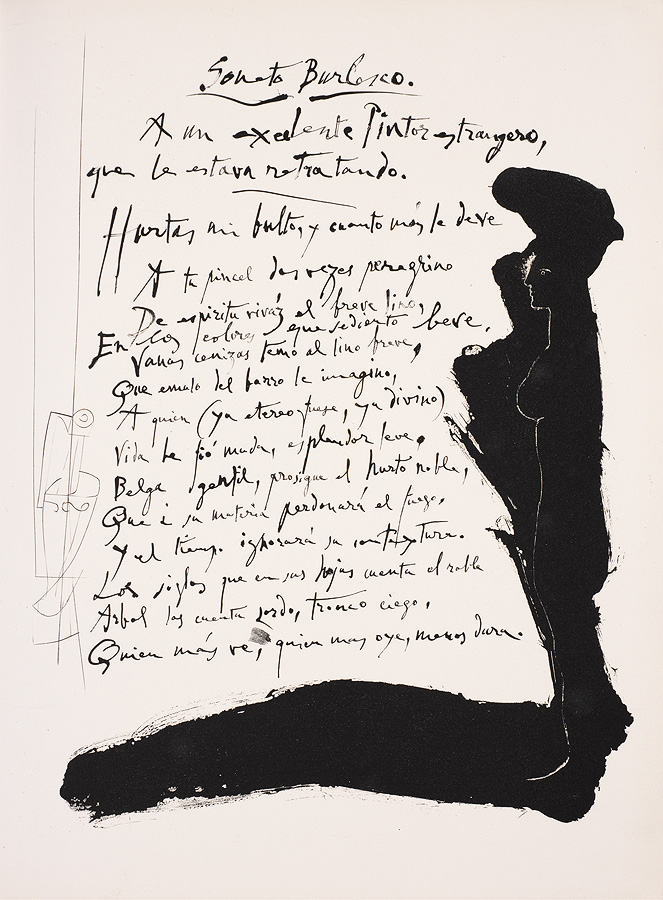 Soneto Burlesco.
A un excelente Pintor estrangero,
que le estava retratando.
Hurtas mi bulto, y cuanto más le deve
A tu pincel dos vezes peregrino
De espiritu vivaz el breve lino,
En los colores que sediento beve.
Vanas cenizas temo al lino breve,
Que emulo del barro le imagino,
A quien (ya etereo fuese, ya divino)
Vida le fió muda, esplandor leve,
Belga gentil, prosigue el hurto noble,
Que à su materia perdonará el fuego,
Y el tiempo ignorará su contextura.
Los siglos que en sus hojas cuenta el roble
Arbol los cuenta sordo, tronco ciego,
Quien más ve, quien mas oye, menos dura.